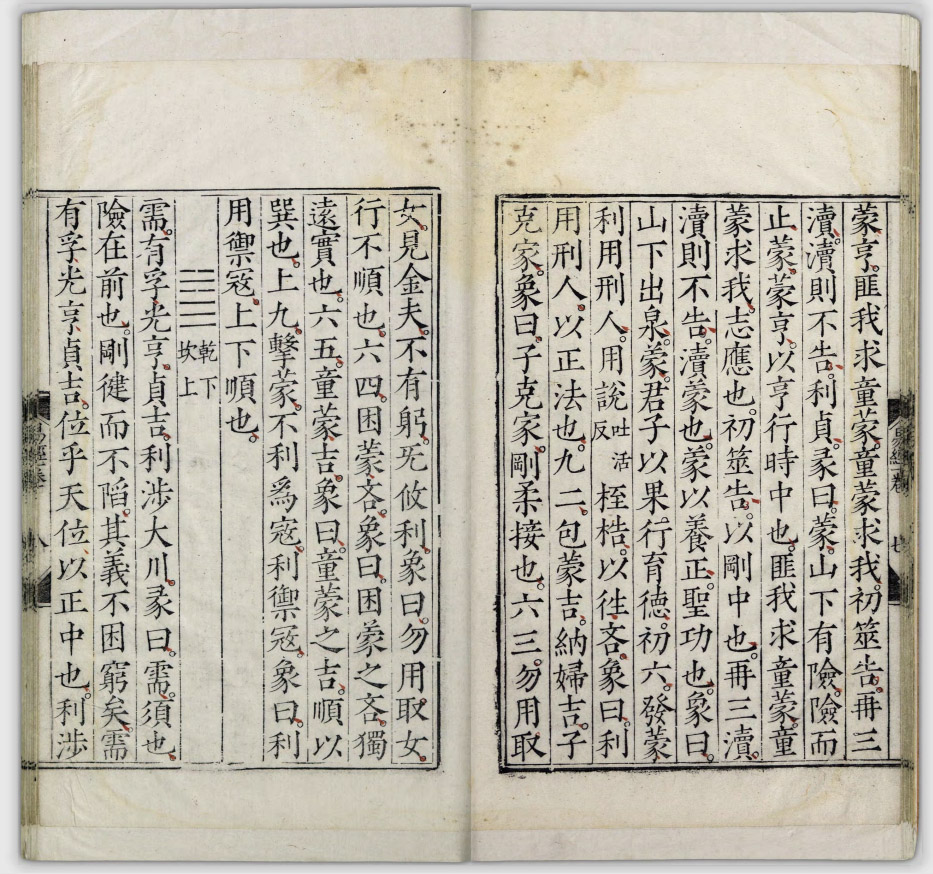 蒙亨匪我求童蒙童蒙求我初筮告再三
瀆瀆則不告利貞彖曰蒙山下有險險而
止蒙蒙亨以亨行時中也匪我求童蒙童
蒙求我志應也初筮告以剛中也再三瀆
瀆則不告瀆蒙也蒙以養正聖功也象曰
山下出泉蒙君子以果行育德初六發蒙
利用刑人用說吐活反桎梏以往吝象曰利
用刑人以正法也九二包蒙吉納婦吉子
克家象曰子克家剛柔接也六三勿用取
女見金夫不有躬无攸利象曰勿用取女
行不順也六四困蒙吝象曰困蒙之吝獨
遠實也六五童蒙吉象曰童蒙之吉順以
巽也上九擊蒙不利爲寇利禦寇象曰利
用禦寇上下順也
乾下
坎上
需有孚光亨貞吉利涉大川彖曰需須也
險在前也剛健而不陷其義不困窮矣需
有孚光亨貞吉位乎天位以正中也利涉
易經卷
七
易經卷
八